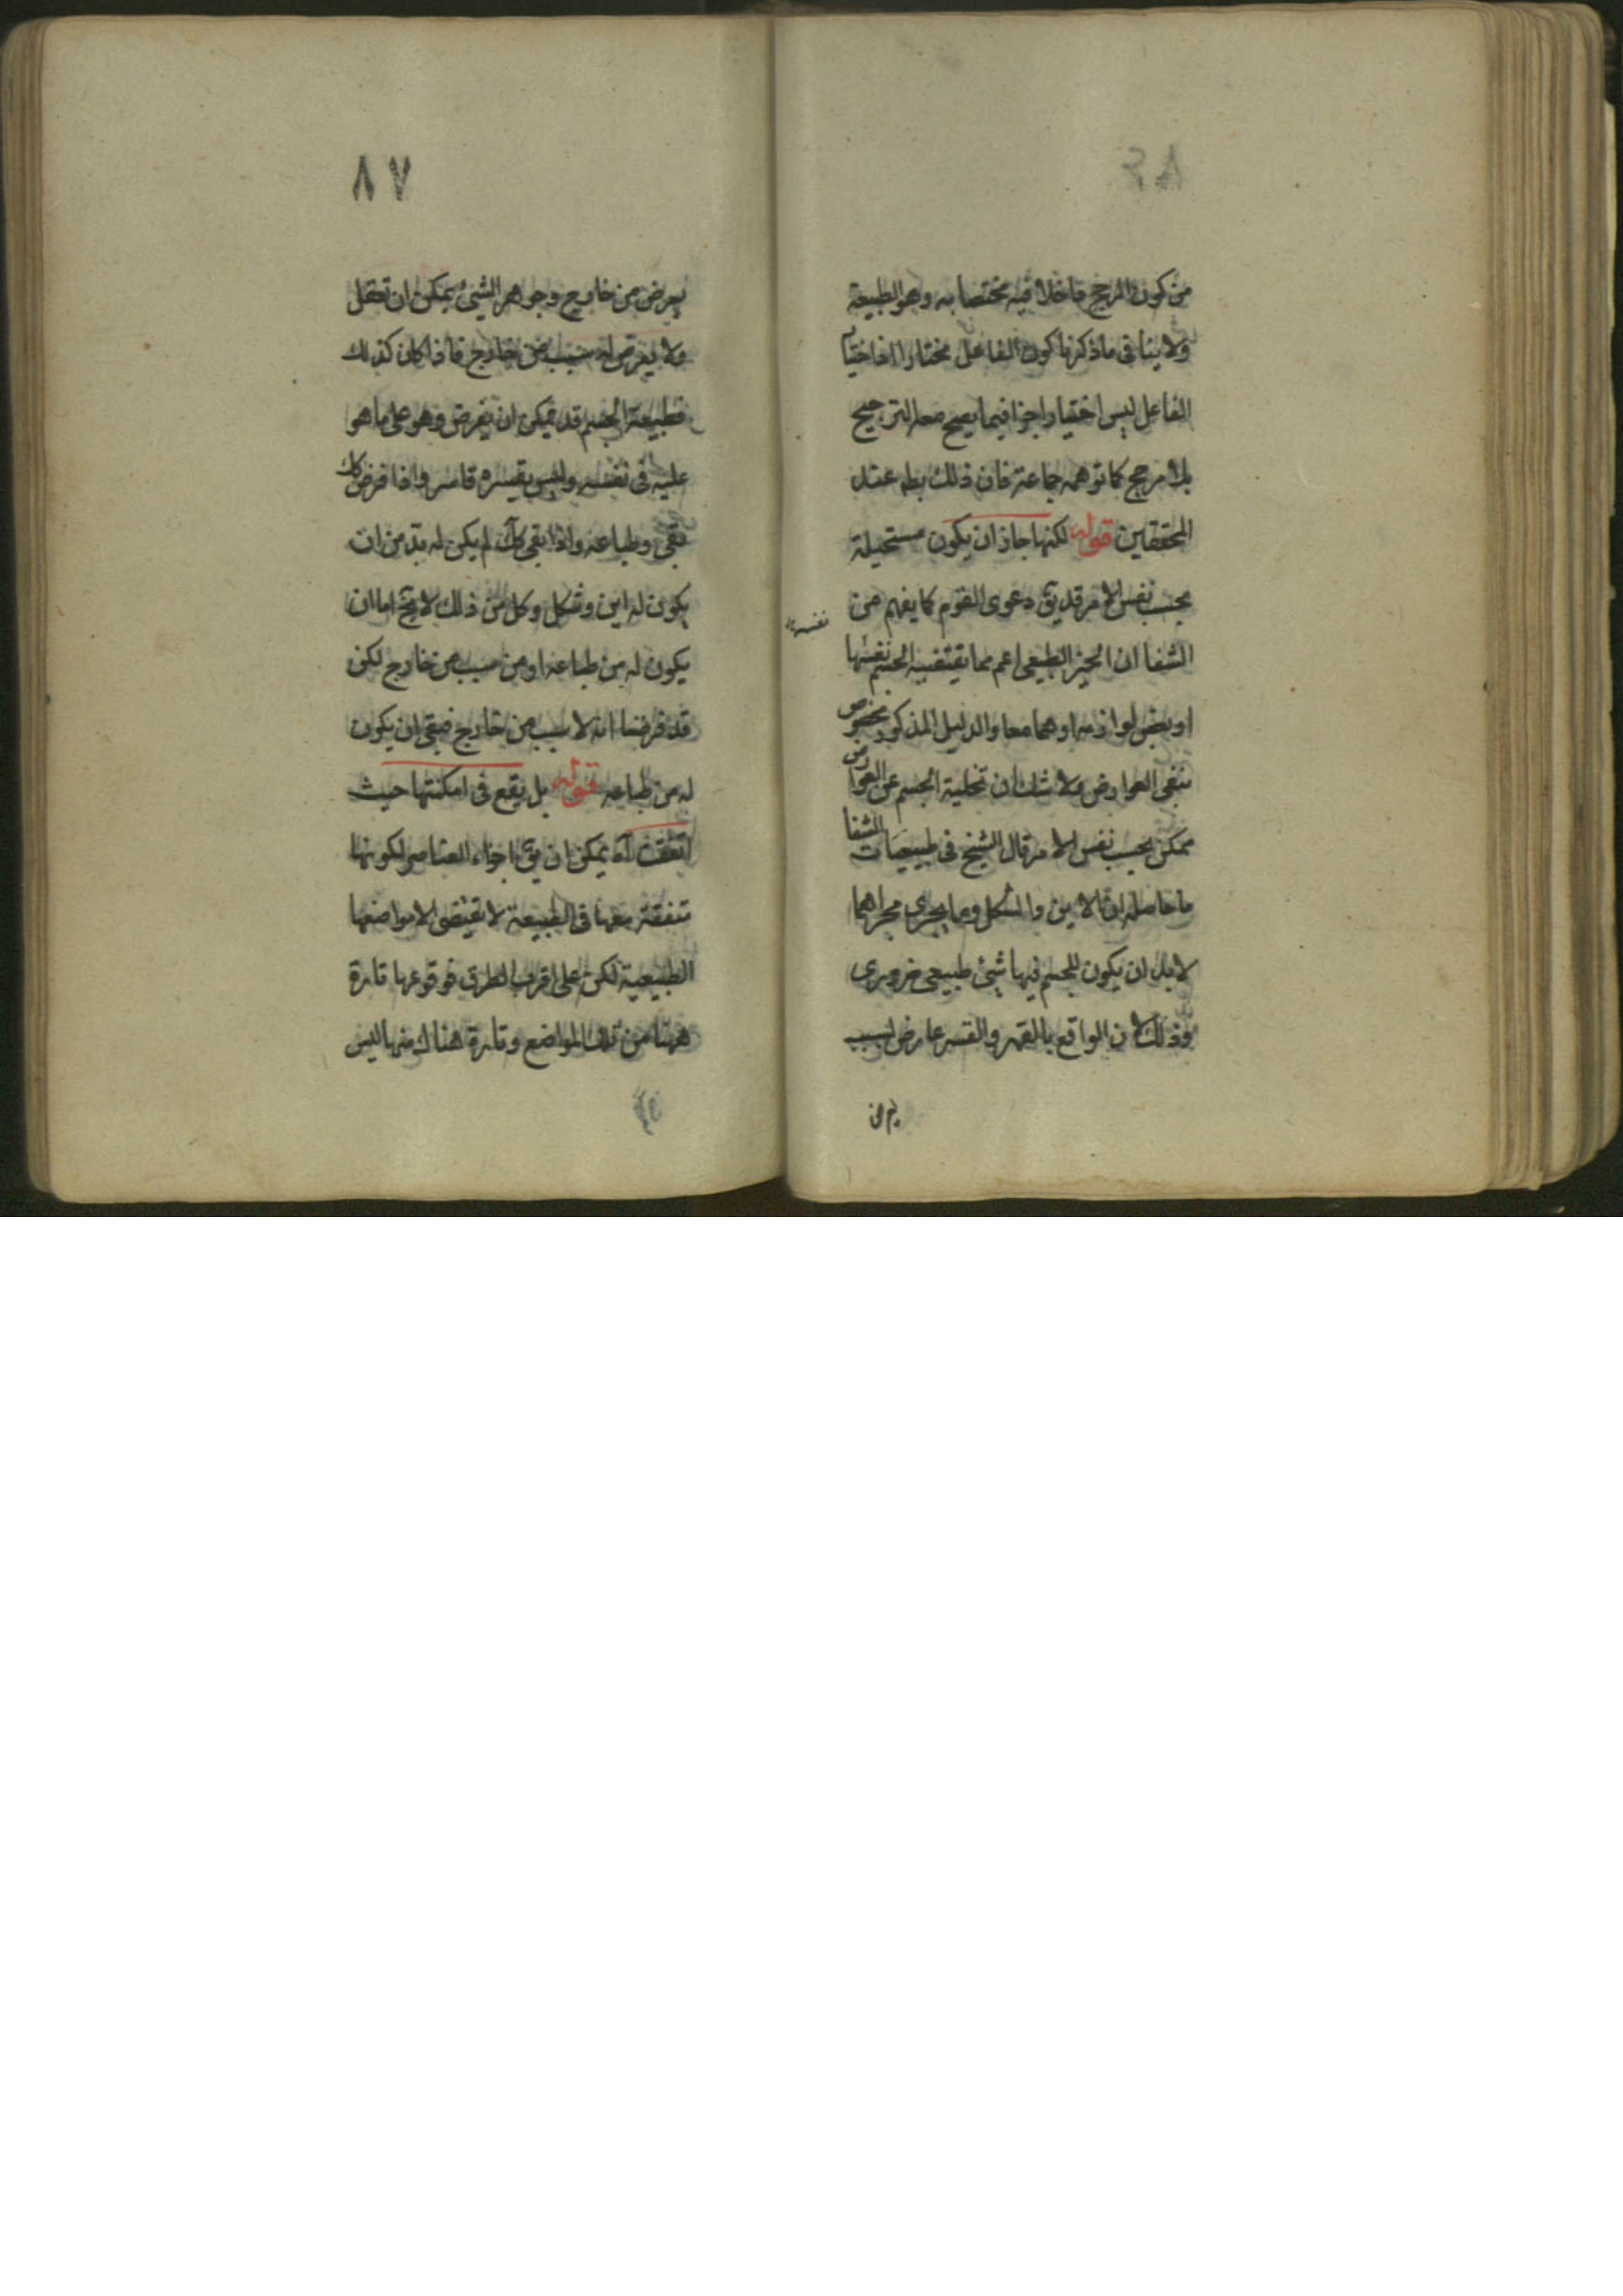 من كون المرجح داخلا فيه مختصا به وهو الطبيعة
ولا ينافى ما ذكرنا كون الفاعل مختارا اذ اختيار
الفاعل ليس اختيارا جزافيما يصح معه الترجيح
بلا مرجح كما توهمه جماعة فان ذلك بط عند
المحققين قوله لكنها جاز ان يكون مستحيلة
بحسب نفس الامر قد يق دعوى القوم كما يفهم من
الشفا ان الحيز الطبيعى اعم مما يقتضيه الجسم نفسها
نفسه
او بعض لوازمه او هما معا والدليل المذكور مخصوص
بنفى العوارض ولا شك ان تخلية الجسم عن العوارض
ممكن بحسب نفس الامر قال الشيخ فى طبيعيات الشفا
ما حاصله ان الاين والشكل وما يجرى مجراهما
لا بد ان يكون للجسم فيها شئ طبيعى ضرورى
وذلك لان الواقع بالقهر والقسر عارض لسبب
٨٧
يعرض من خارج وجوهر الشئ يمكن ان تعقل
ولا يعرض له سبب من خارج فاذا كان كذلك
فطبيعة الجسم قد يمكن ان يفرض وهو على ما هو
عليه فى نفسه وليس يقسره قاسر واذا فرض كك
بقى وطباعه واذا بقى كك لم يكن له بد من ان
يكون له اين وشكل وكل من ذلك لا يخ اما ان
يكون له من طباعه او من سبب من خارج لكن
قد فرضنا انه لا سبب من خارج فبقى ان يكون
له من طباعه قوله بل يقع فى امكنتها حيث
اتفقت آه يمكن ان يق اجزاء العناصر لكونها
متفقة معها فى الطبيعة لا تقتضى الا مواضعها
الطبيعية لكن على اقرب الطرق فوقوعها تارة
ههنا من تلك المواضع وتارة هناك منها ليس